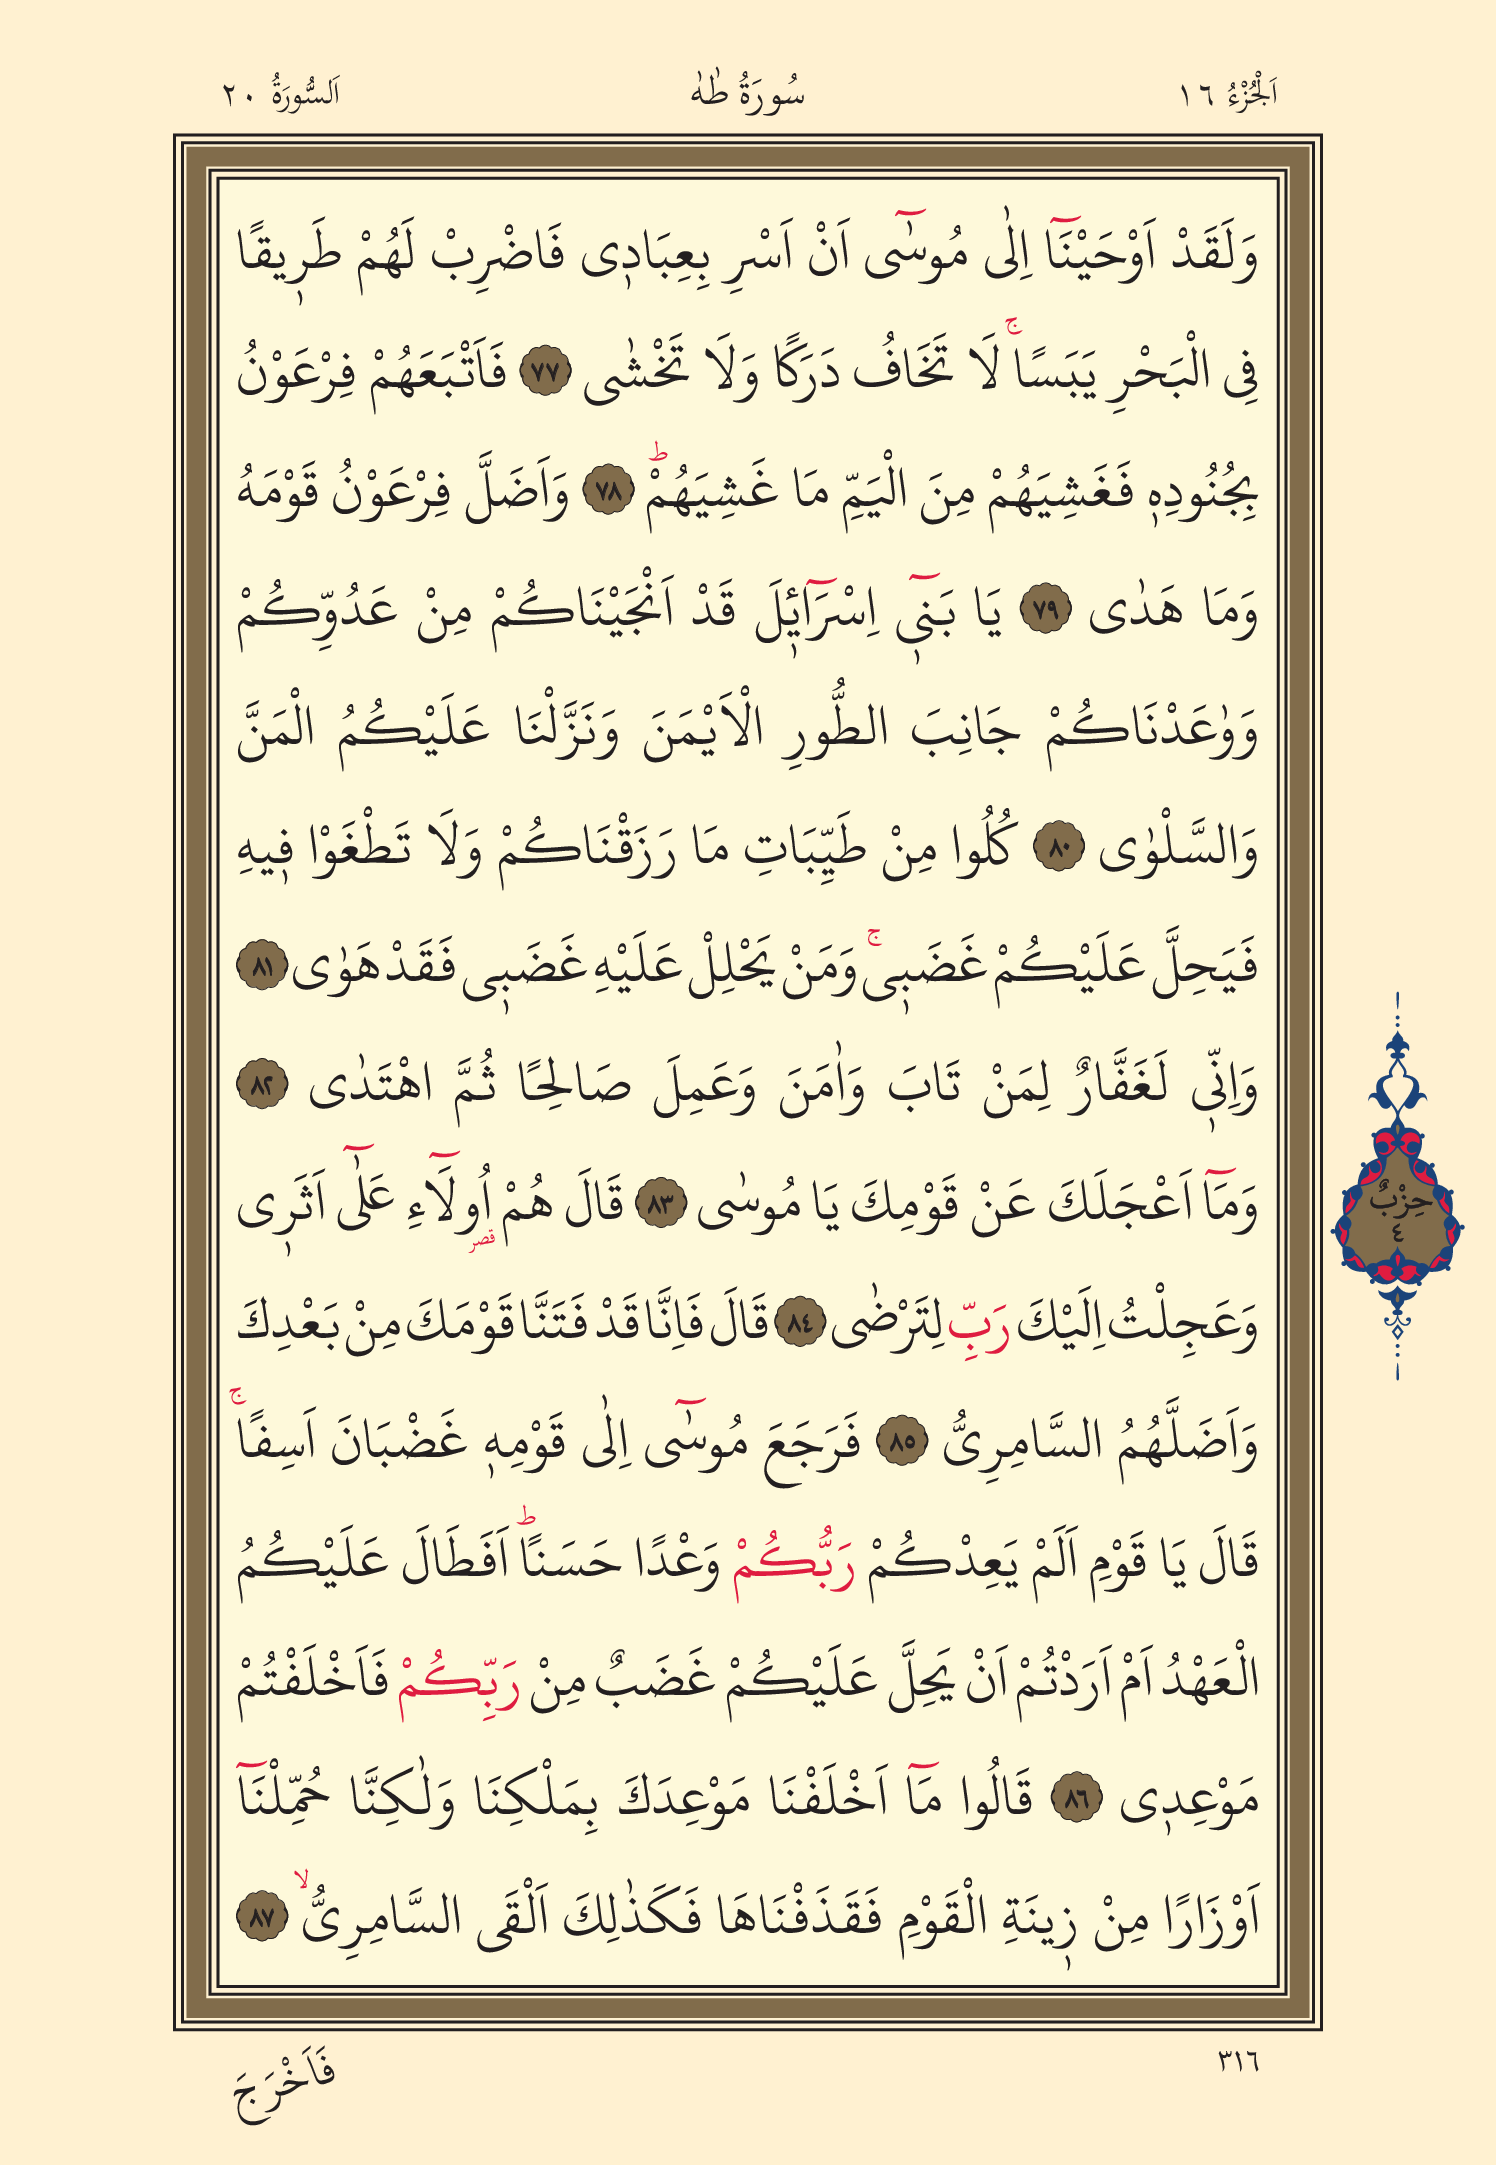 اَلْجُزْءُ ١٦ سُورَةُ طٰهٰ اَلسُّورَةُ ٢٠
وَلَقَدْ اَوْحَيْنَٓا اِلٰى مُوسٰٓى اَنْ اَسْرِ بِعِبَادٖى فَاضْرِبْ لَهُمْ طَرٖيقًا
فِى الْبَحْرِ يَبَسًاۚ لَا تَخَافُ دَرَكًا وَلَا تَخْشٰى ﴿٧٧﴾ فَاَتْبَعَهُمْ فِرْعَوْنُ
بِجُنُودِهٖ فَغَشِيَهُمْ مِنَ الْيَمِّ مَا غَشِيَهُمْؕ ﴿٧٨﴾ وَاَضَلَّ فِرْعَوْنُ قَوْمَهُ
وَمَا هَدٰى ﴿٧٩﴾ يَا بَنٖٓى اِسْرَٓائٖلَ قَدْ اَنْجَيْنَاكُمْ مِنْ عَدُوِّكُمْ
وَوٰعَدْنَاكُمْ جَانِبَ الطُّورِ الْاَيْمَنَ وَنَزَّلْنَا عَلَيْكُمُ الْمَنَّ
وَالسَّلْوٰى ﴿٨٠﴾ كُلُوا مِنْ طَيِّبَاتِ مَا رَزَقْنَاكُمْ وَلَا تَطْغَوْا فٖيهِ
فَيَحِلَّ عَلَيْكُمْ غَضَبٖىۚ وَمَنْ يَحْلِلْ عَلَيْهِ غَضَبٖى فَقَدْ هَوٰى ﴿٨١﴾
وَاِنّٖى لَغَفَّارٌ لِمَنْ تَابَ وَاٰمَنَ وَعَمِلَ صَالِحًا ثُمَّ اهْتَدٰى ﴿٨٢﴾
وَمَٓا اَعْجَلَكَ عَنْ قَوْمِكَ يَا مُوسٰى ﴿٨٣﴾ قَالَ هُمْ اُولَٓاءِ عَلٰٓى اَثَرٖى
قصر
حِزْبٌ
٤
وَعَجِلْتُ اِلَيْكَ رَبِّ لِتَرْضٰى ﴿٨٤﴾ قَالَ فَاِنَّا قَدْ فَتَنَّا قَوْمَكَ مِنْ بَعْدِكَ
وَاَضَلَّهُمُ السَّامِرِىُّ ﴿٨٥﴾ فَرَجَعَ مُوسٰٓى اِلٰى قَوْمِهٖ غَضْبَانَ اَسِفًاۚ
قَالَ يَا قَوْمِ اَلَمْ يَعِدْكُمْ رَبُّكُمْ وَعْدًا حَسَنًاؕ اَفَطَالَ عَلَيْكُمُ
الْعَهْدُ اَمْ اَرَدْتُمْ اَنْ يَحِلَّ عَلَيْكُمْ غَضَبٌ مِنْ رَبِّكُمْ فَاَخْلَفْتُمْ
مَوْعِدٖى ﴿٨٦﴾ قَالُوا مَٓا اَخْلَفْنَا مَوْعِدَكَ بِمَلْكِنَا وَلٰكِنَّا حُمِّلْنَٓا
اَوْزَارًا مِنْ زٖينَةِ الْقَوْمِ فَقَذَفْنَاهَا فَكَذٰلِكَ اَلْقَى السَّامِرِىُّۙ ﴿٨٧﴾
٣١٦
فَاَخْرَجَ